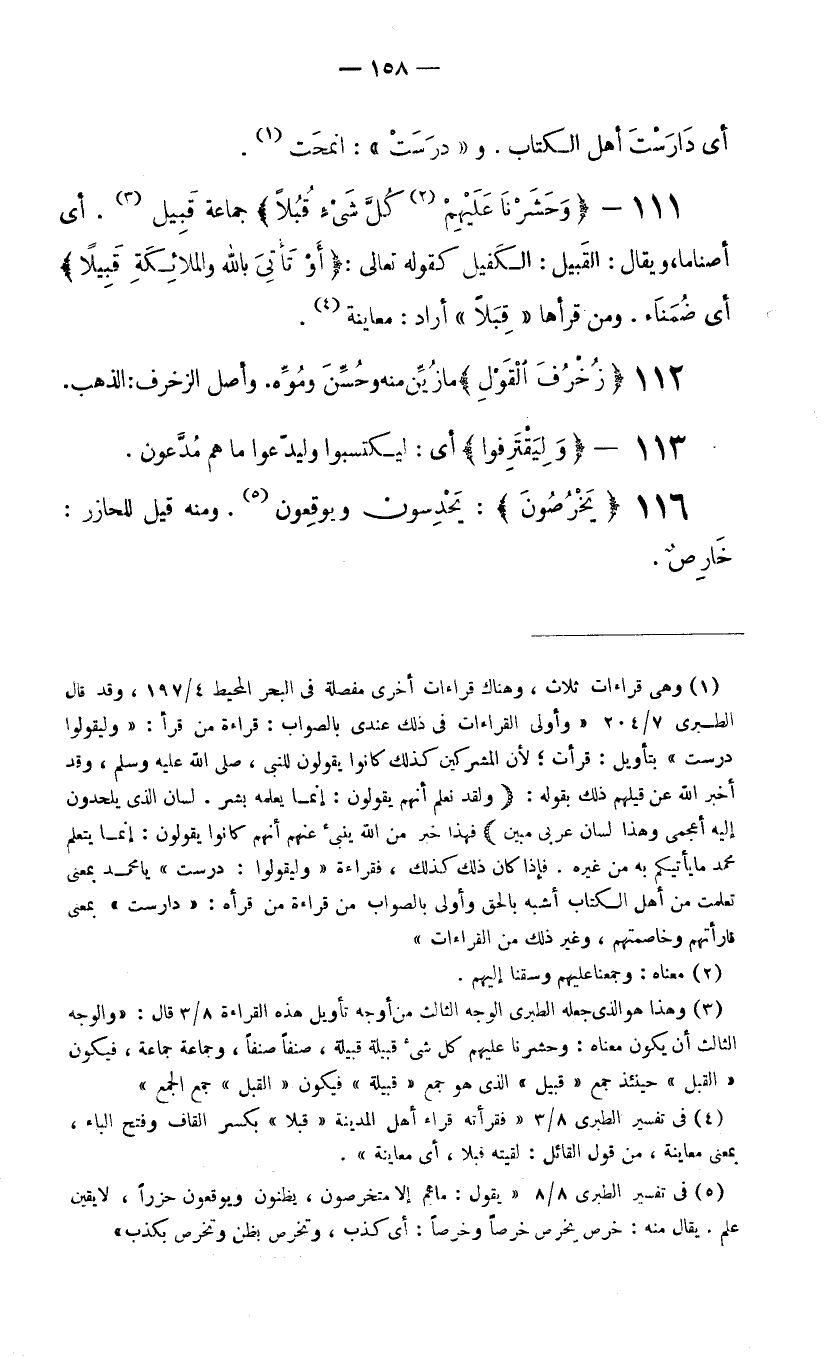 — ١٥٨ —
أى دَارَسْتَ أهل الـكتاب . و « درَسَتْ » : انمحَت (١) .
١١١ — ﴿ وَحَشَرْنَا عَلَيْهِمْ (٢) كُلَّ شَىْءٍ قُبُلاً ﴾ جماعة قَبِيل (٣) . أى
أصناما، ويقال : القَبيل : الـكَفيل كقوله تعالى : ﴿ أَوْ تَأْتِىَ بالله والملائِـكَةِ قَبِيلًا ﴾
أى ضُمَنَاء . ومن قرأها « قِبَلاً » أراد : معاينة (٤) .
١١٢ ﴿ زُخْرُفَ ٱلْقَوْلِ ﴾ مازُيِّن منه وحُسِّنَ ومُوِّه. وأصل الزخرف: الذهب.
١١٣ — ﴿ وَلِيَقْتَرِفوا ﴾ أى : ليـكتسبوا وليدّعوا ما هم مُدَّعون .
١١٦ ﴿ يَخْرُصُونَ ﴾ : يَحْدِسون ويوقِعون (٥) . ومنه قيل للحازر :
خَارِصٌ .
(١) وهى قراءات ثلاث ، وهناك قراءات أخرى مفصلة فى البحر المحيط ١٩٧/٤ ، وقد قال
الطـبرى ٢٠٤/٧ « وأولى القراءات فى ذلك عندى بالصواب : قراءة من قرأ : « وليقولوا
درست » بتأويل : قرأت ؛ لأن المشركين كذلك كانوا يقولون للنبى ، صلى الله عليه وسلم ، وقد
أخبر الله عن قيلهم ذلك بقوله : ﴿ ولقد نعلم أنهم يقولون : إنمـا يعلمه بشر . لسان الذى يلحدون
إليه أعجمى وهذا لسان عربى مبين ﴾ فهذا خبر من الله ينبىء عنهم أنهم كانوا يقولون : إنمـا يتعلم
محمد مايأتيكم به من غيره . فإذا كان ذلك كذلك ، فقراءة « وليقولوا : درست » يامحمـد بمعنى
تعلمت من أهل الـكتاب أشبه بالحق وأولى بالصواب من قراءة من قرأه : « دارست » بمعنى
قارأتهم وخاصمتهم ، وغير ذلك من القراءات »
(٢) معناه : وجمعنا عليهم وسقنا إليهم .
(٣) وهذا هو الذى جعله الطبرى الوجه الثالث من أوجه تأويل هذه القراءة ٣/٨ قال : «والوجه
الثالث أن يكون معناه : وحشرنا عليهم كل شىء قبيلة قبيلة ، صنفاً صنفاً ، وجماعة جماعة ، فيكون
« القبل » حينئذ جمع « قبيل » الذى هو جمع « قبيلة » فيكون « القبل » جمع الجمع »
(٤) فى تفسير الطبرى ٣/٨ « فقرأته قراء أهل المدينة « قبلا » بكسر القاف وفتح الباء ،
بمعنى معاينة ، من قول القائل : لقيته قبلا ، أى معاينة » .
(٥) فى تفسير الطبرى ٨/٨ « يقول : ماهم إلا متخرصون ، يظنون ويوقعون حزراً ، لايقين
علم . يقال منه : خرص يخرص خرصاً وخرصاً : أى كذب ، وتخرص بظن وتخرص بكذب»